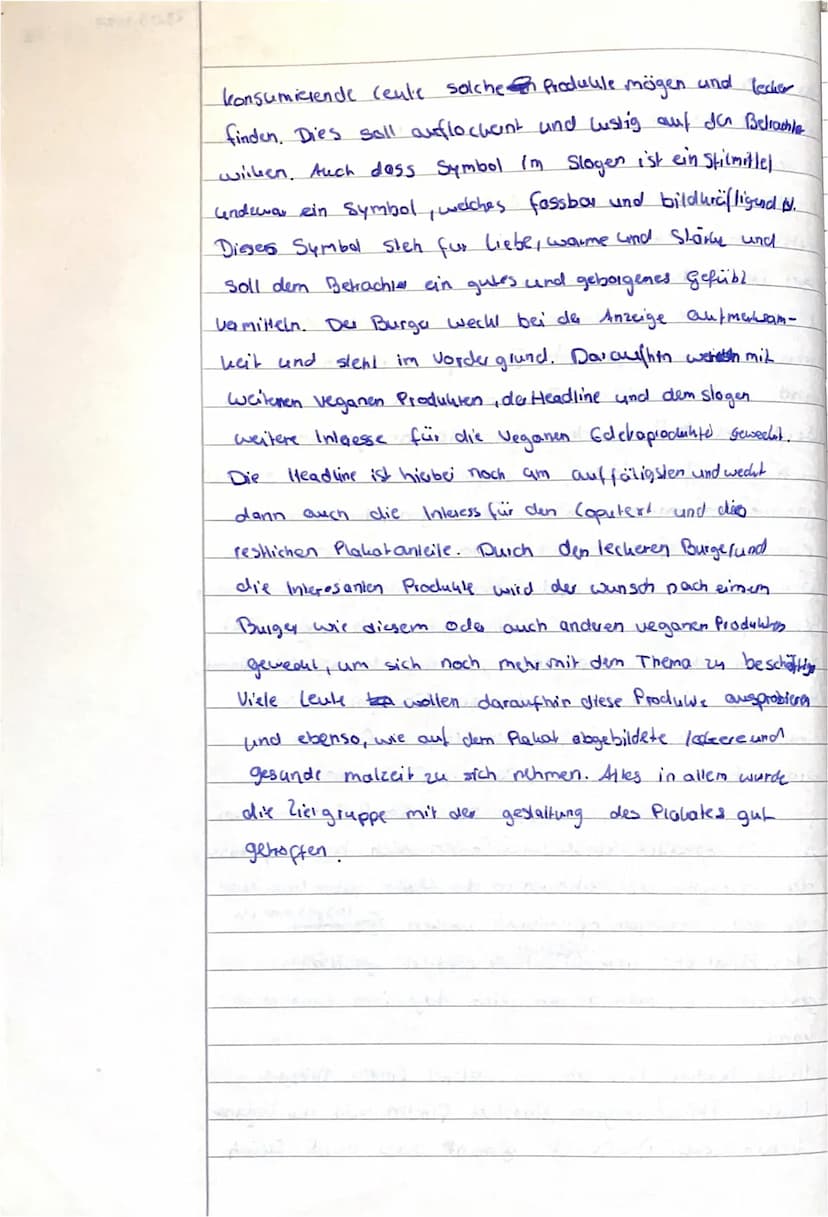 konsumierende Leute solche Produkte mögen und lecker
finden. Dies soll auflockernt und lustig auf den Betrachter
wirken. Auch dass Symbol im Slogen ist ein Stilmittel
undzwar ein Symbol, welches fassbar und bildkräftigend ist.
Dieses Symbol steh fur Liebe, warme und Stärke und
soll dem Betrachter ein gutes und geborgenes Gefühl
vermitteln. Der Burger weckt bei der Anzeige aufmerksam-
keit und steht im Vordergrund. Daraufhin mit
weiteren veganen Produkten, der Headline und dem slogen
weitere Interesse für die veganen Edekaprodukte geweckt.
Die Headline ist hierbei noch am auffäligsten und weckt
dann auch die Interess für den Copytext und die
restlichen Plakatanteile. Durch den leckeren Burger und
die Interesanten Produkte wird der wunsch nach einem
Burger wie diesem oder auch anderen veganen Produkten
geweckt, um sich noch mehr mit dem Thema zu beschäftig
Viele Leute wollen daraufhin diese Produkte ausprobieren
und ebenso, wie auf dem Plakat abgebildete leckere und
gesunde malzeit zu sich nehmen. Alles in allem wurde
die Zielgruppe mit der gestaltung des Plakates gut
getroffen.